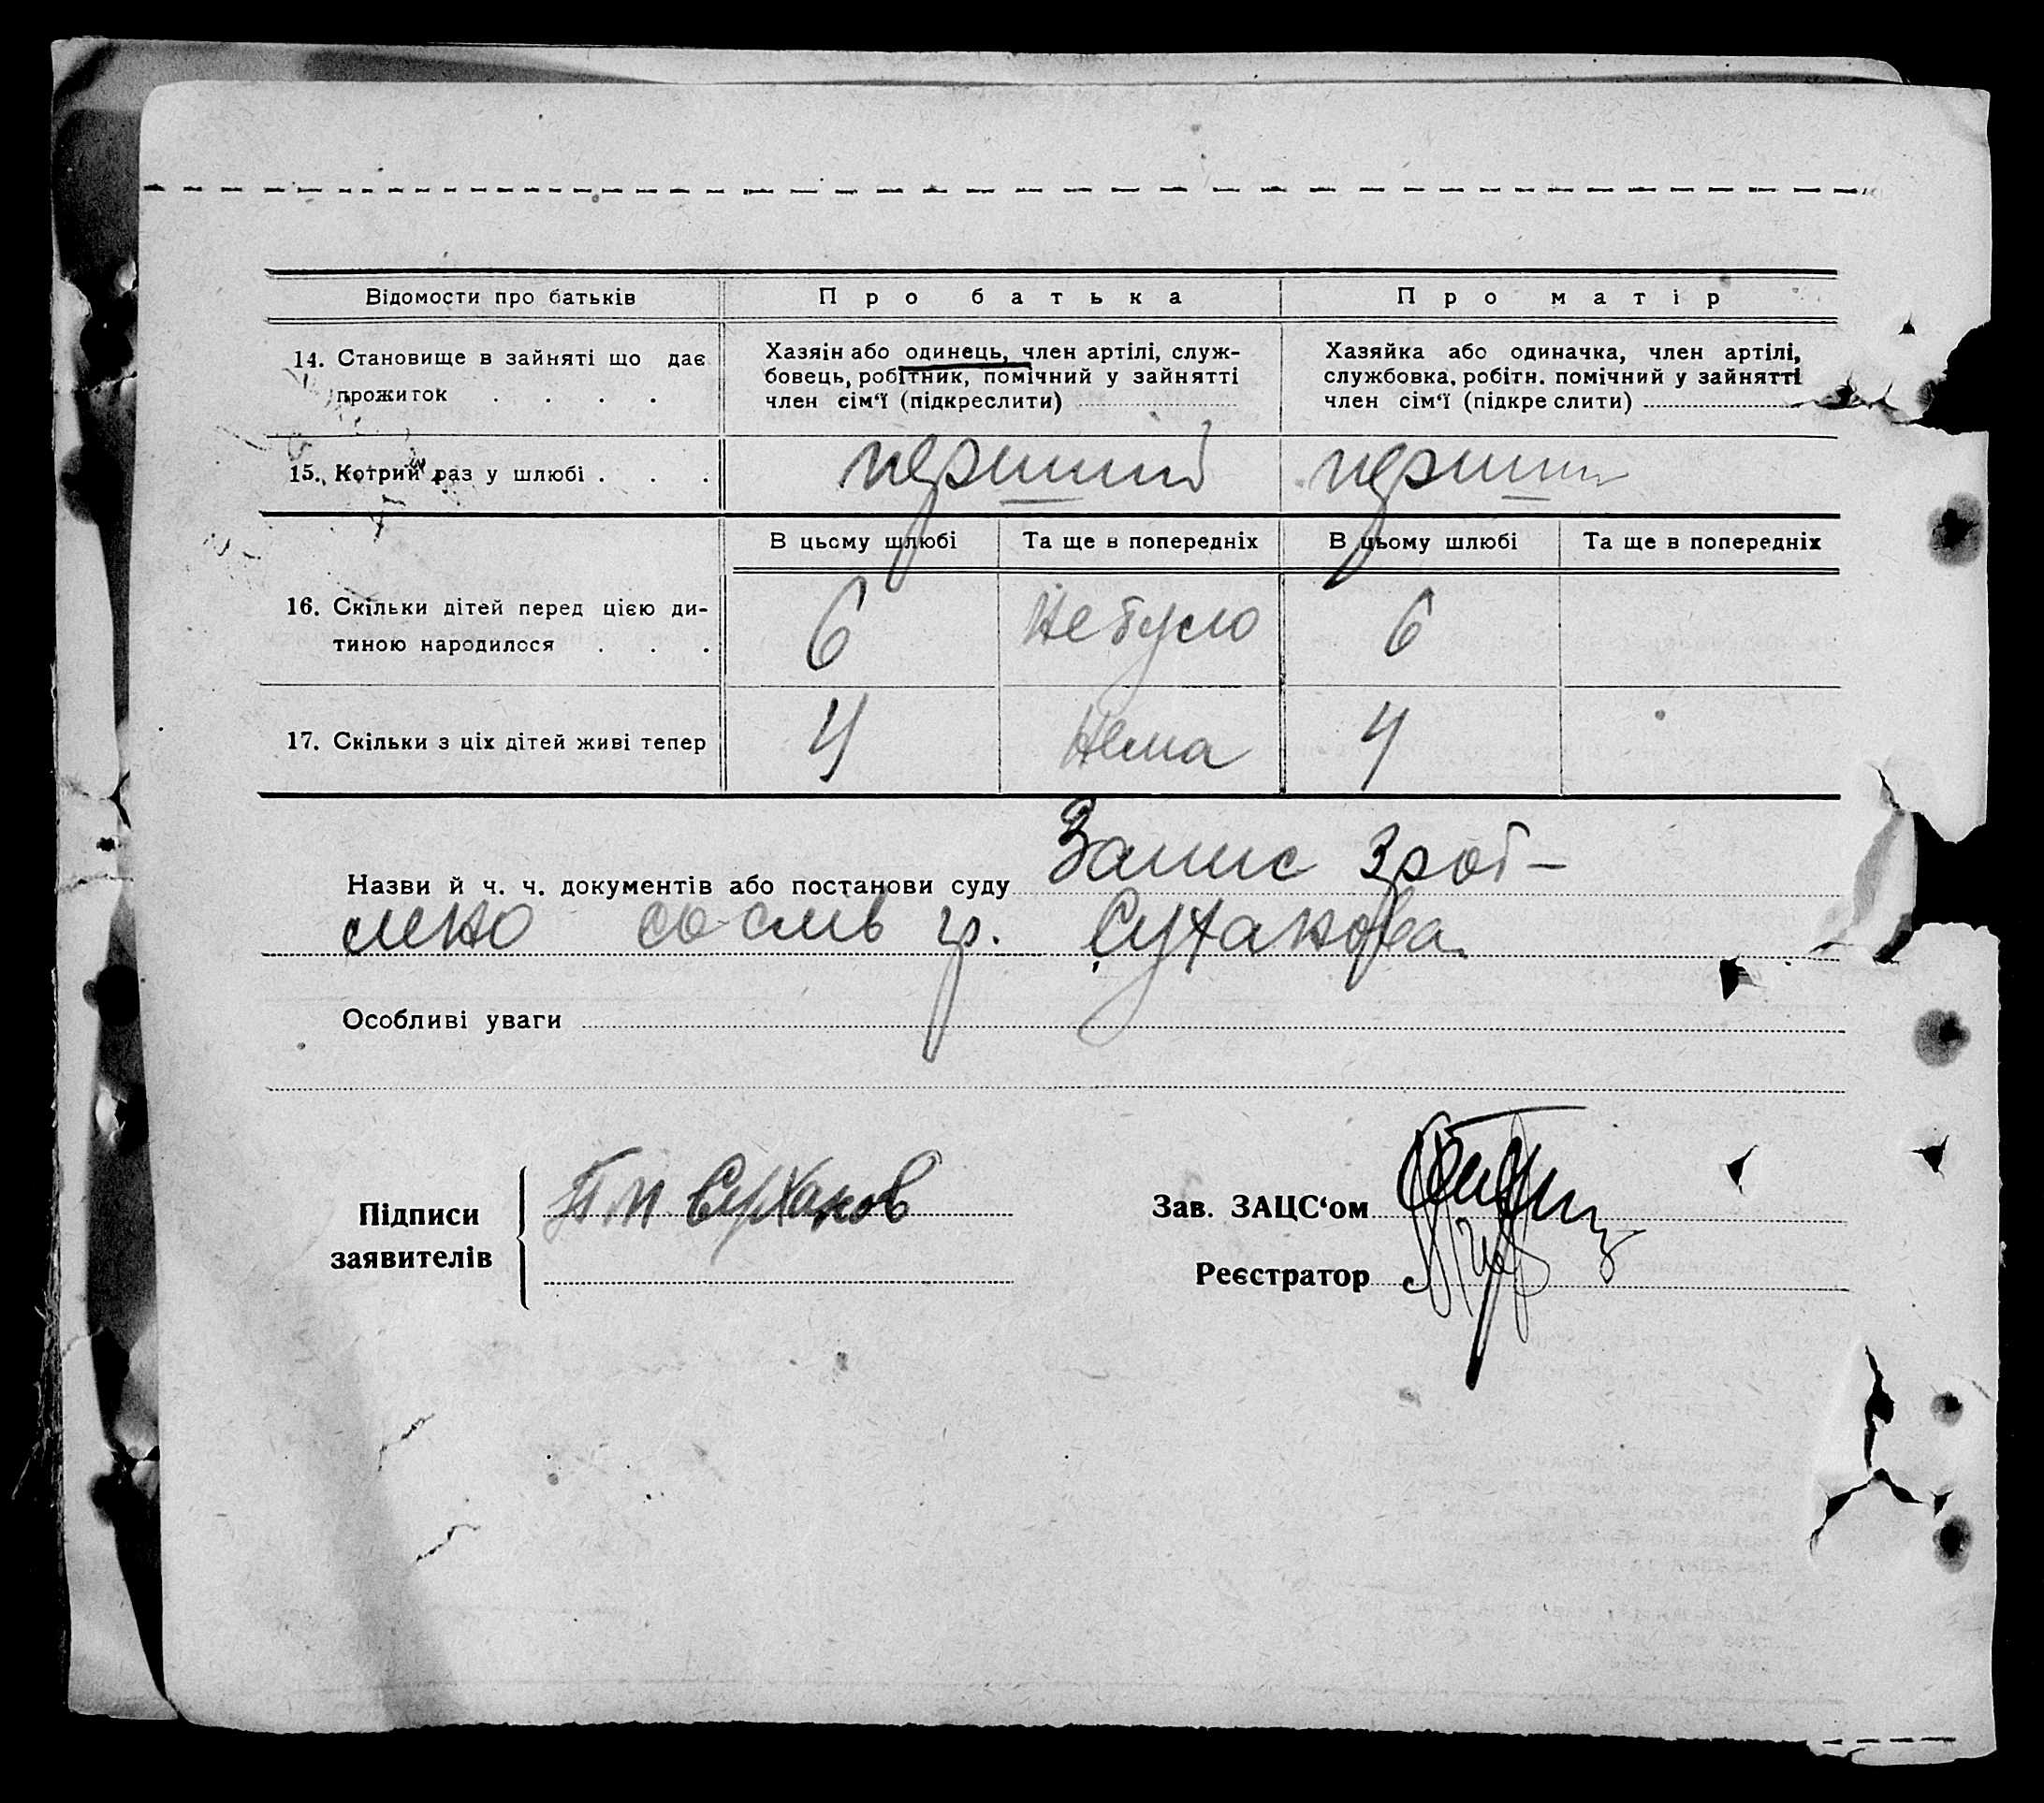 Відомости про батьків
Про батька
Про матір
14. Становище в зайняті що дає
прожиток . . . .
Хазяін або одинець, член артілі, служ-
бовець, робітник, помічний у зайнятті
член сім‘ї (підкреслити)
Хазяйка або одиначка, член артілі,
службовка, робітн. помічний у зайнятті
член сім‘ї (підкреслити)
15. Котрий раз у шлюбі . . .
перший
перший
В цьому шлюбі
Та ще в попередніх
В цьому шлюбі
Та ще в попередніх
16. Скільки дітей перед цією ди-
тиною народилося . . .
6
не було
6
17. Скільки з ціх дітей живі тепер
4
Нема
4
Назви й ч. ч. документів або постанови суду Запис зроб-
лено со слів гр. Суханова
Особливі уваги
Підписи
заявителів
Суханов
Зав. ЗАЦС‘ом
Реєстратор